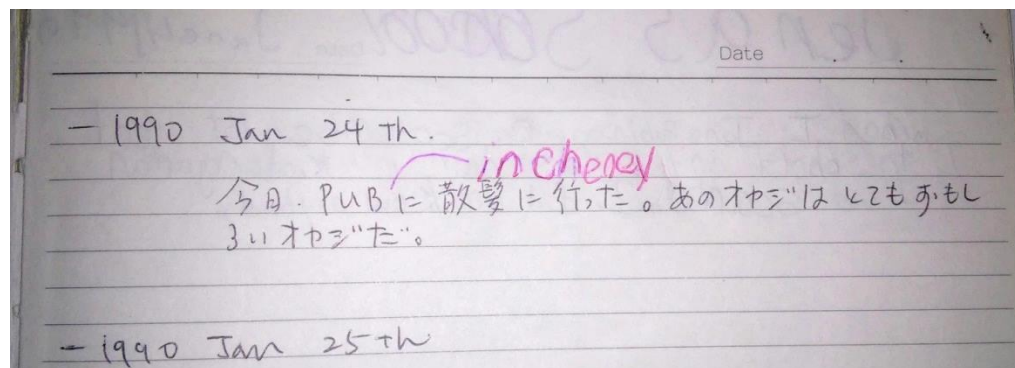 Date
- 1990 Jan 24 th.
in Cheney
今日. PUBに 散髪に行った。あのオヤジは とても おもし
ろいオヤジだ。
- 1990 Jan 25 th